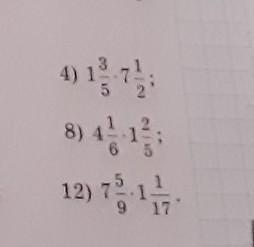 4) 1 3/5 · 7 1/2;
8) 4 1/6 · 1 2/5;
12) 7 5/9 · 1 1/17.